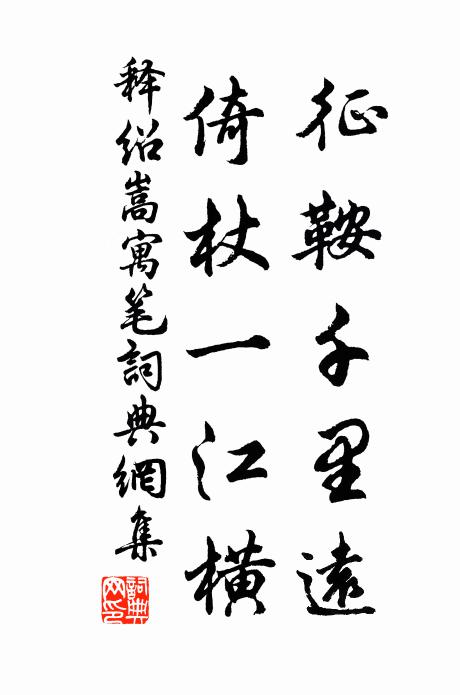 征鞍千里遠
倚杖一江橫
释绍嵩寓笔詞典網集
詞典網印